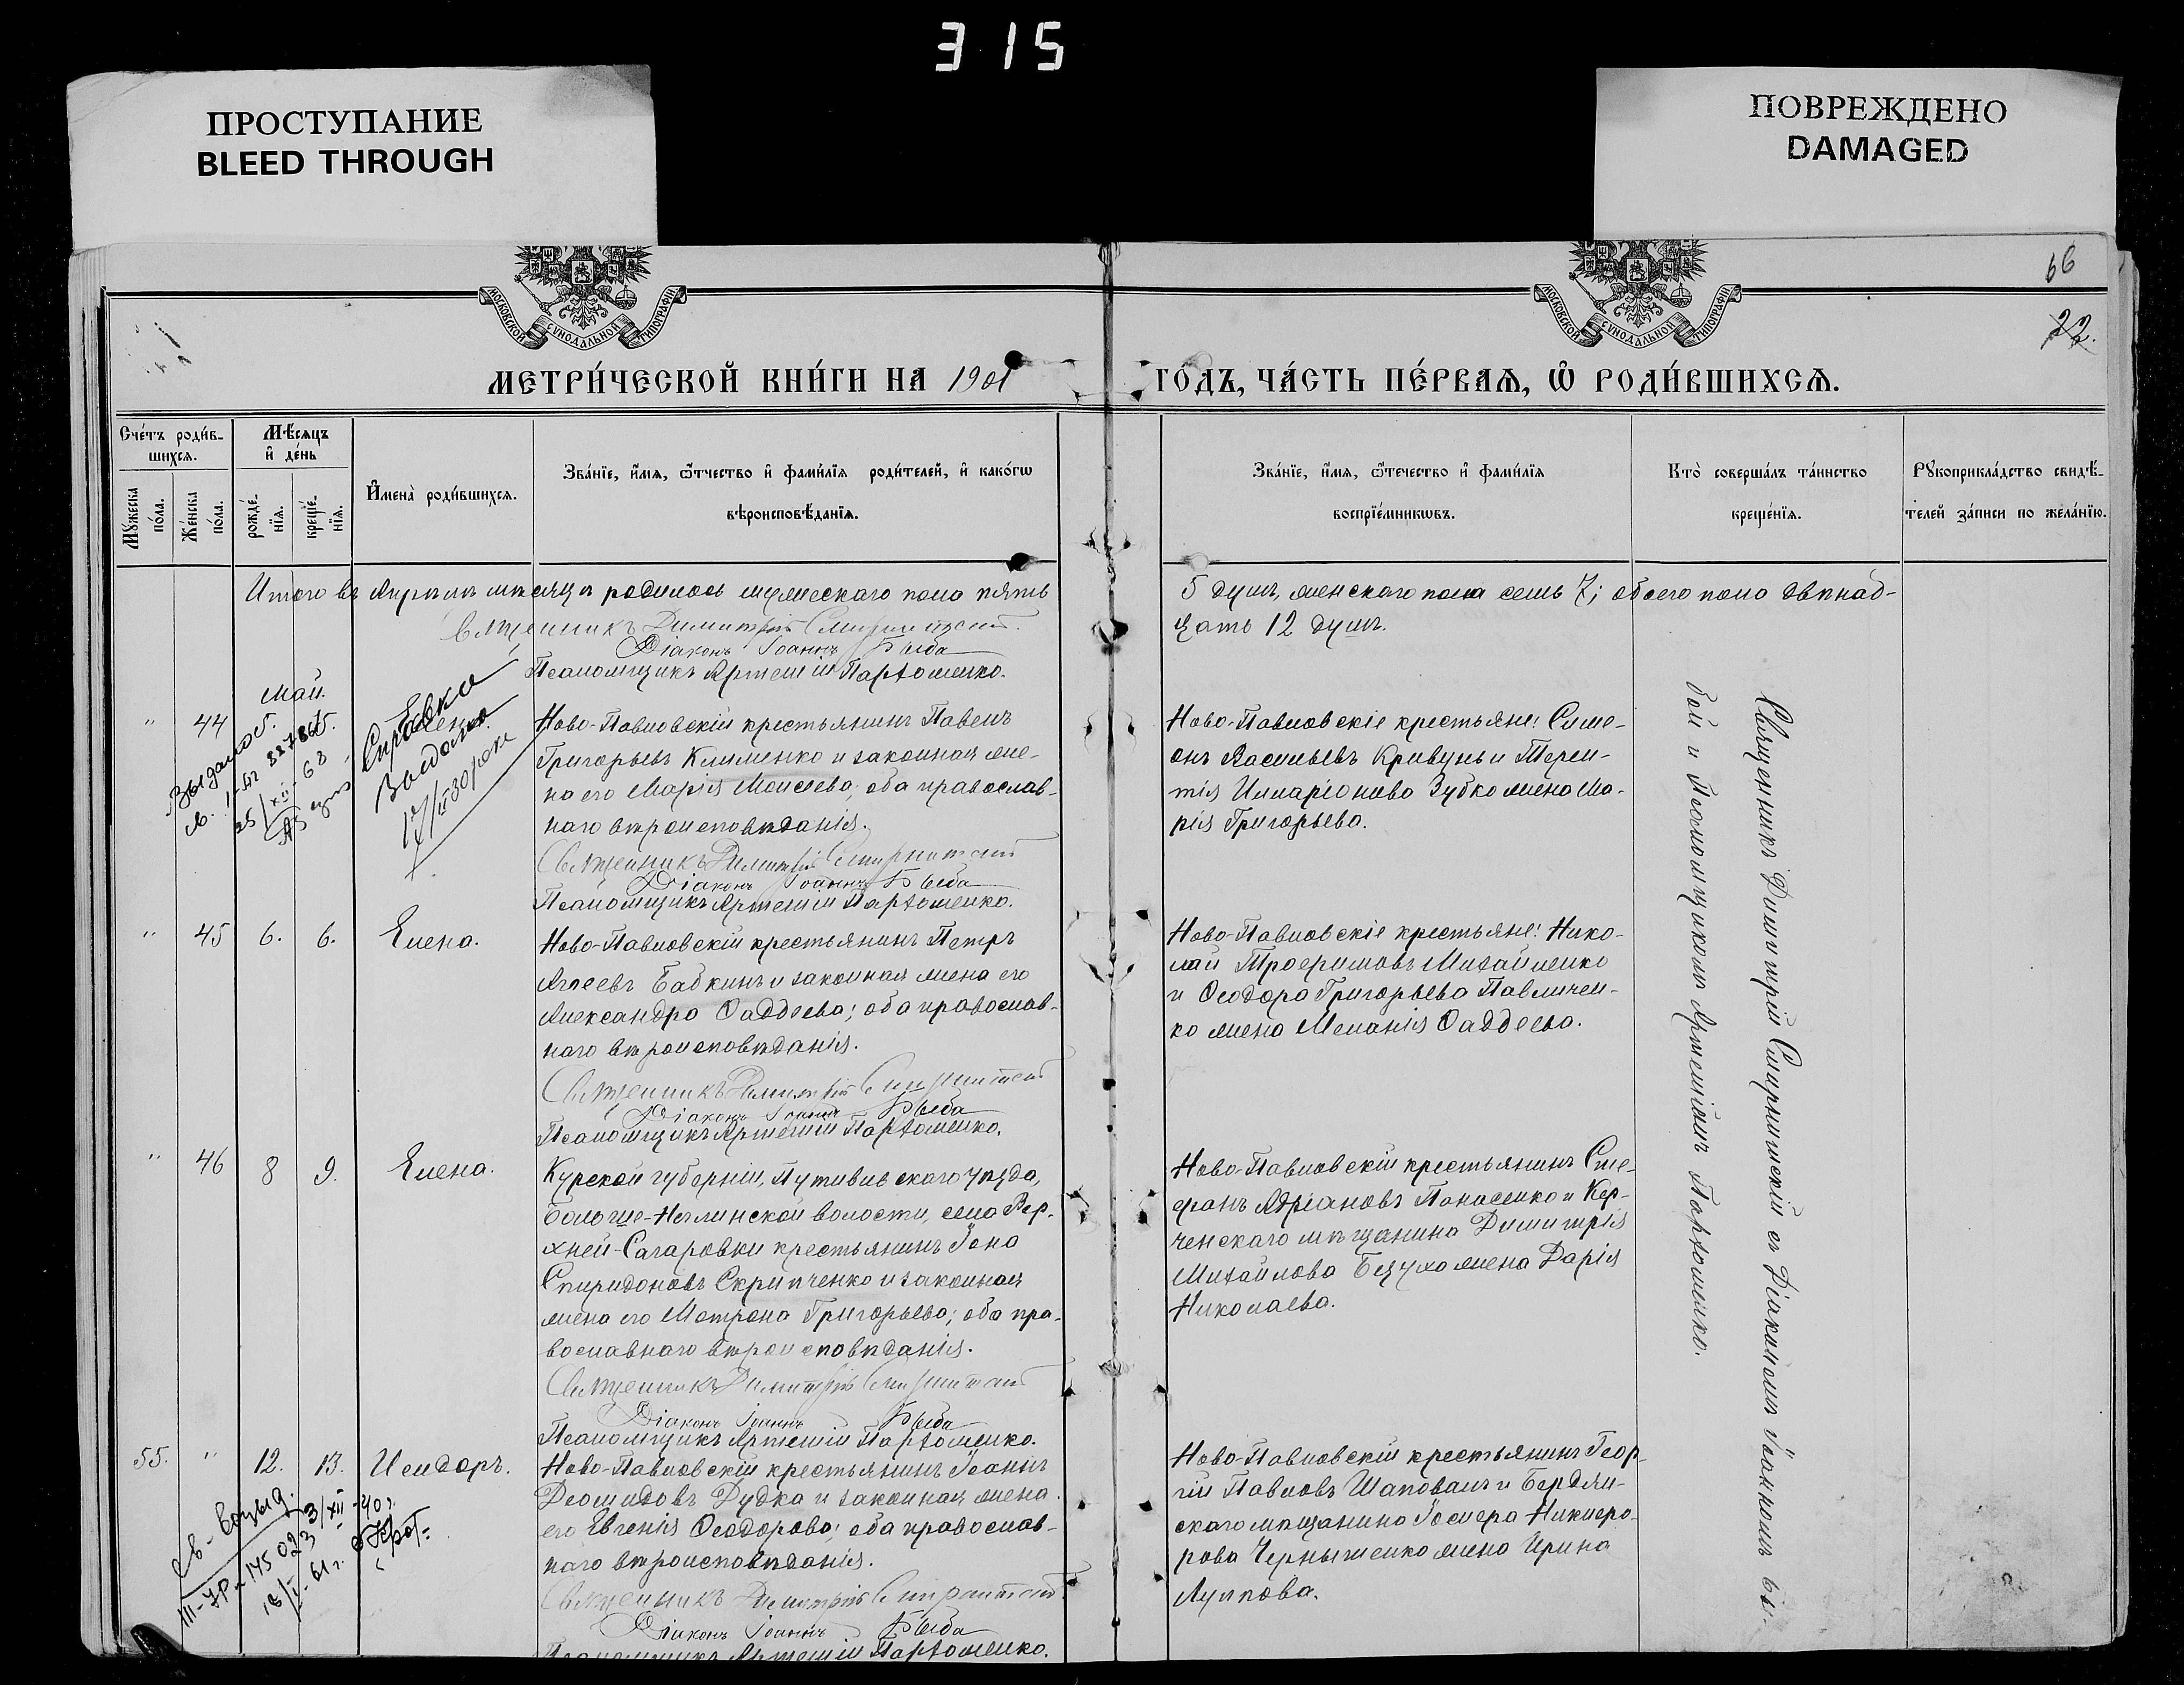 315
ПРОСТУПАНИЕ
BLEED THROUGH
ПОВРЕЖДЕНО
DAMAGED
МОСКОВСКОЙ СѴНОДАЛЬНОЙ ТИПОГРАФІИ
МОСКОВСКОЙ СѴНОДАЛЬНОЙ ТИПОГРАФІИ
66
22.
МЕТРИ́ЧЕСКОЙ КНИ́ГИ НА 1901
ГО́ДЪ, ЧА́СТЬ ПЕ́РВАѦ, Ѿ РОДИ́ВШИХСѦ.
Сче́тъ роди́в-
шихсѧ.
Мѣ́сѧцъ
и҆ де́нь
Мꙋ́жеска
по́ла.
Же́нска
по́ла.
рожде́-
нїѧ.
креще́-
нїѧ.
И҆мена̀ роди́вшихсѧ.
Зва́нїе, и҆́мѧ, ѻ҆́тчество и҆ фами́лїѧ роди́телей, и҆ како́гѡ
вѣроисповѣ́данїѧ.
Зва́нїе, и҆́мѧ, ѻ҆́течество и҆ фами́лїѧ
воспрїе́мникѡвъ.
Кто̀ соверша́лъ та́инство
креще́нїѧ.
Рꙋкоприкла́дство свидѣ́-
телей за́писи по жела́нїю.
Итого въ Апрѣлѣ мѣсяцѣ родилось мужескаго пола пять
5 душъ, женскаго пола семь 7; обоего пола двѣнад-
цать 12 душъ.
Священникъ Димитрій Смирнитскій
Діаконъ Іоаннъ Быба
Псаломщикъ Артемій Пархоменко.
Май.
" 44
Справка
Выдана
Ново-Павловскій крестьянинъ Павелъ
Григорьевъ Клименко и законная же-
на его Марія Моисеева; оба православ-
наго вѣроисповѣданія.
Священникъ Димитрій Смирнитскій
Діаконъ Іоаннъ Быба
Псаломщикъ Артемій Пархоменко.
Ново-Павловскіе крестьяне: Симе-
онъ Васильевъ Кривунь и Терен-
тія Илларіонова Зубко жена Ма-
рія Григорьева.
" 45 6. 6. Елена.
Ново-Павловскій крестьянинъ Петръ
Агѣевъ Бабкинъ и законная жена его
Александра Ѳаддеева; оба православ-
наго вѣроисповѣданія.
Священникъ Димитрій Смирнитскій
Діаконъ Іоаннъ Быба
Псаломщикъ Артемій Пархоменко.
Ново-Павловскіе крестьяне: Нико-
лай Трофимовъ Михайленко
и Ѳеодора Григорьева Павличен-
ко жена Меланія Ѳаддеева.
" 46 8 9. Елена.
Курской губерніи, Путивльскаго уѣзда,
села Вер-
хней-Сагаровки крестьянинъ Іона
Спиридоновъ Скрипченко и законная
жена его Матрона Григорьева; оба пра-
вославнаго вѣроисповѣданія.
Священникъ Димитрій Смирнитскій
Діаконъ Іоаннъ Быба
Псаломщикъ Артемій Пархоменко.
Ново-Павловскій крестьянинъ Сте-
фанъ Адріановъ Панасенко и Кер-
ченскаго мѣщанина Димитрія
Михайлова жена Дарія
Николаева.
55. " 12. 13. Исидоръ.
Ново-Павловскій крестьянинъ Іоаннъ
Діомидовъ Дудка и законная жена
его Евгенія Ѳеодорова; оба православ-
наго вѣроисповѣданія.
Священникъ Димитрій Смирнитскій
Діаконъ Іоаннъ Быба
Псаломщикъ Артемій Пархоменко.
Ново-Павловскій крестьянинъ Геор-
гій Павловъ Шаповалъ и Бердян-
скаго мѣщанина Никифо-
рова Чернышенко жена Ирина
Священникъ Димитрій Смирнитскій съ Діакономъ Іоанномъ Бы-
бой и Псаломщикомъ Артеміемъ Пархоменко.